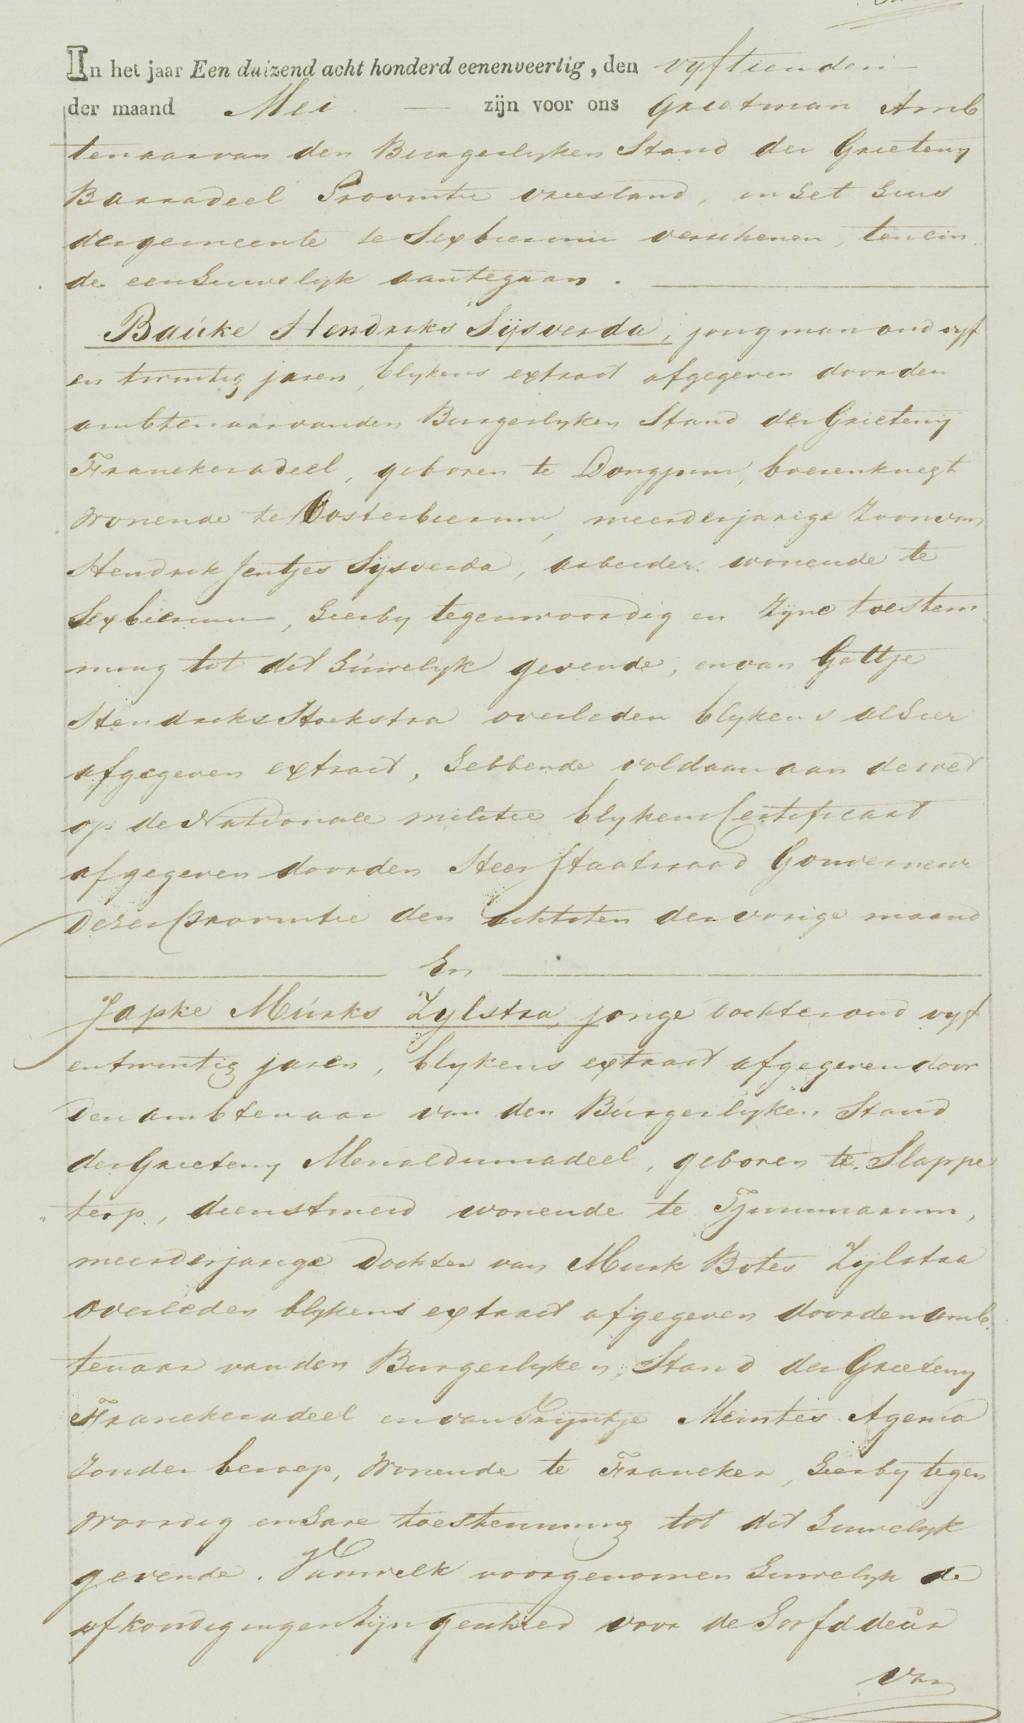 In het jaar Een duizend acht honderd eenenveertig, den vyftienden
der maand Mei — zijn voor ons Grietman Amb
tenaar van den Burgerlyken Stand der Grieteny
Barradeel Provintie vriesland, in het huis
der gemeente te Sexbierum verschenen, tenein
de een huwelyk aantegaan.
Bauke Hendriks Sijsverda, jongman oud vyf
en twintig jaren, blykens extract afgegeven door den
ambtenaar van den Burgerlyken Stand der Grieteny
Franekeradeel, geboren te Dongjum, boerenknegt
wonende te Oosterbierum, meerderjarige Zoon van
Hendrik Jentjes Sijsverda, arbeider wonende te
Sexbierum, hierby tegenwoordig en zyne toestem
ming tot dit huwelyk gevende, en van Gettje
Hendriks Hoekstra overleden blykens alhier
afgegeven extract, hebbende voldaan aan de wet
op de Nationale militie blykens Certificaat
afgegeven door den Heer Staatsraad Gouverneur
dezer Provintie den achtsten der vorige maand
En
Japke Murks Zylstra, jonge dochter oud vyf
en twintig jaren, blykens extract afgegeven door
den ambtenaar van den Burgerlyken Stand
der Grieteny Menaldumadeel, geboren te Slappe
terp, dienstmeid wonende te Tjummarum,
meerderjarige Dochter van Murk Botes Zylstra
overleden blykens extract afgegeven door den amb
tenaar van den Burgerlyken Stand der Grieteny
Franekeradeel en van Tryntje Meintes Agema
zonder beroep, wonende te Franeker, hierby tegen
woordig en hare toestemming tot dit huwelyk
gevende. Van welk voorgenomen huwelyk de
afkondigingen zijn geschied voor de hoofddeur
van